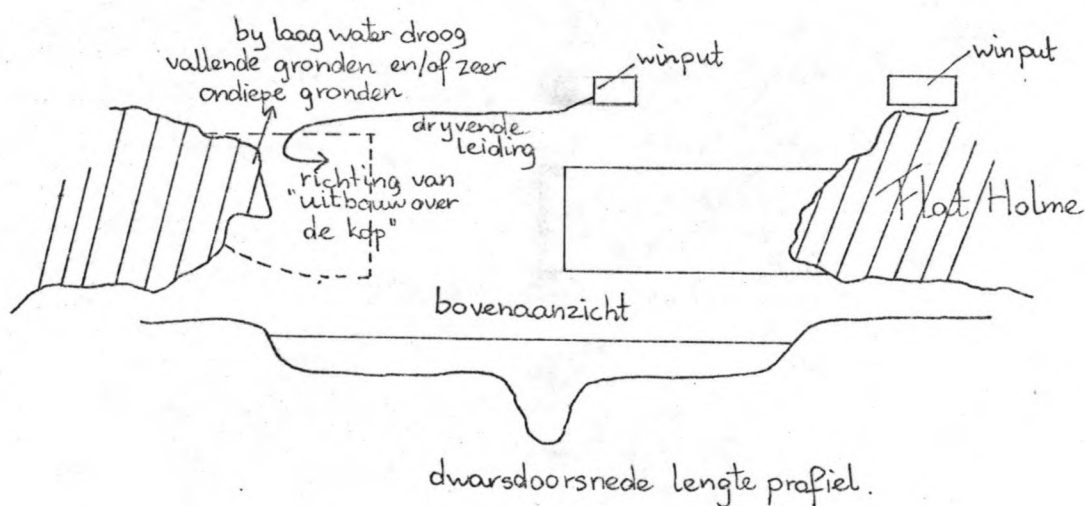 by laag water droog
vallende gronden en/of zeer
ondiepe gronden
winput
winput
dryvende
leiding
"richting van
"uitbouw over
de kop"
Flat Holme
bovenaanzicht
dwarsdoorsnede lengte profiel.